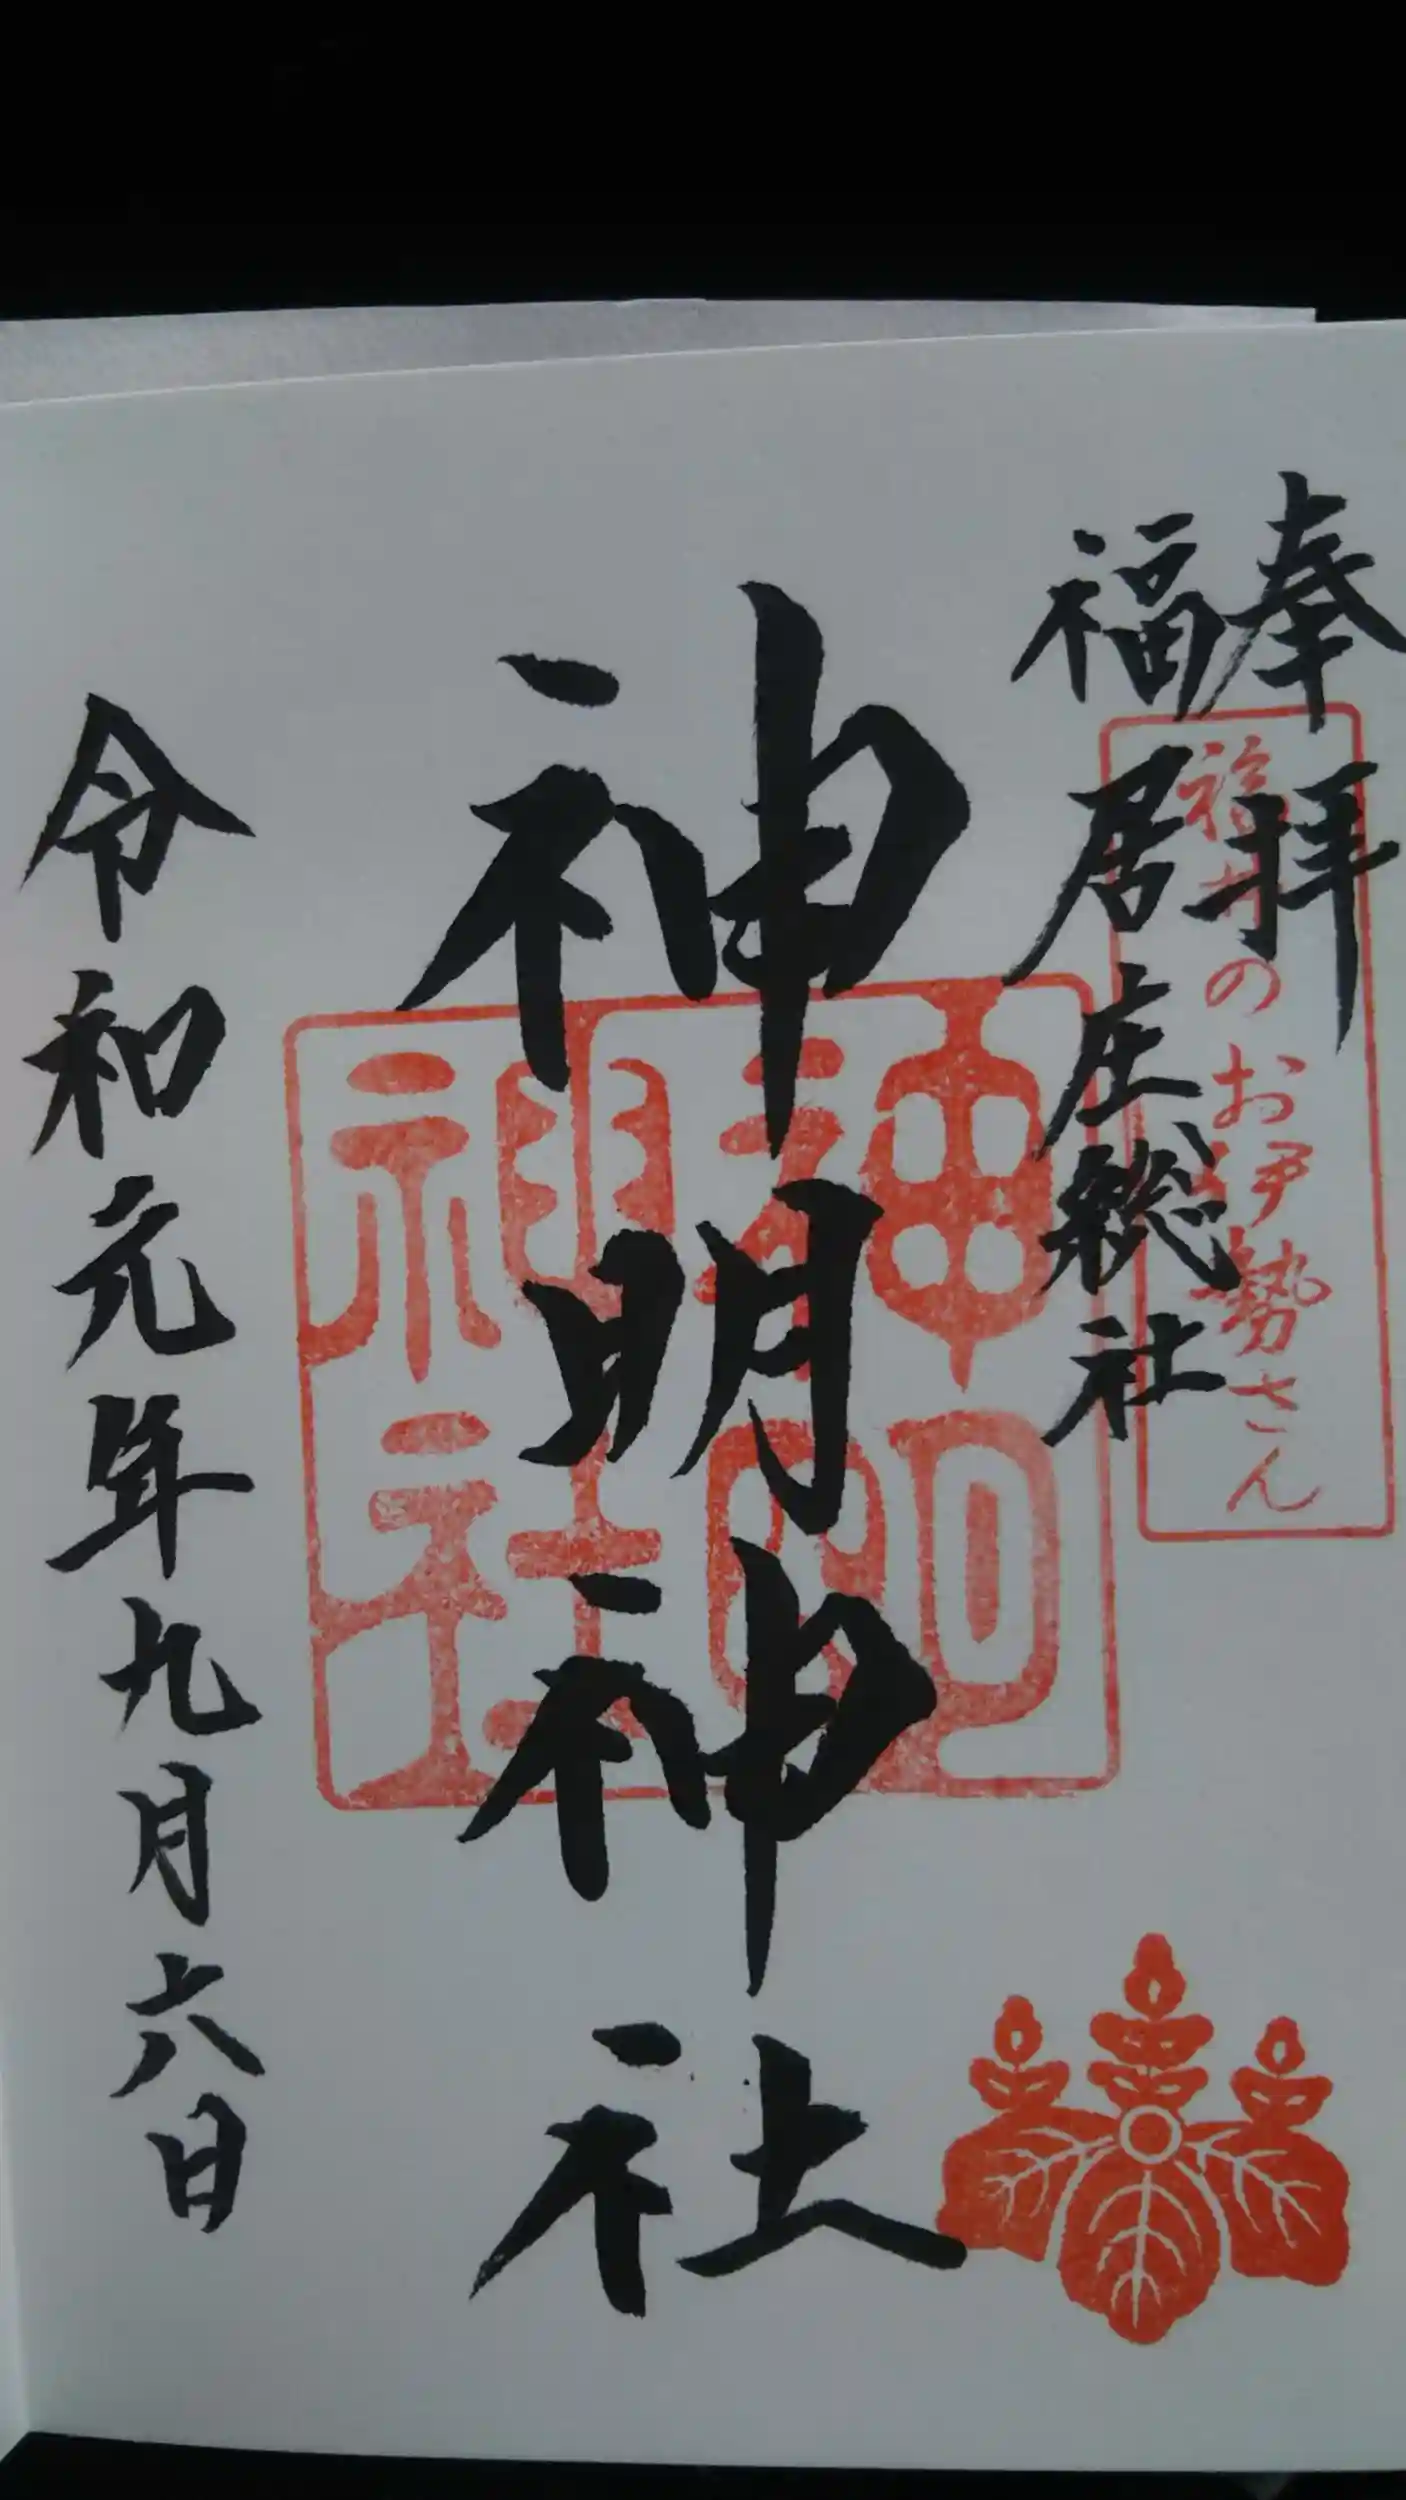 奉拝
福井のお伊勢さん
福居庄総社
神明神社
神明神社
令和元年九月六日